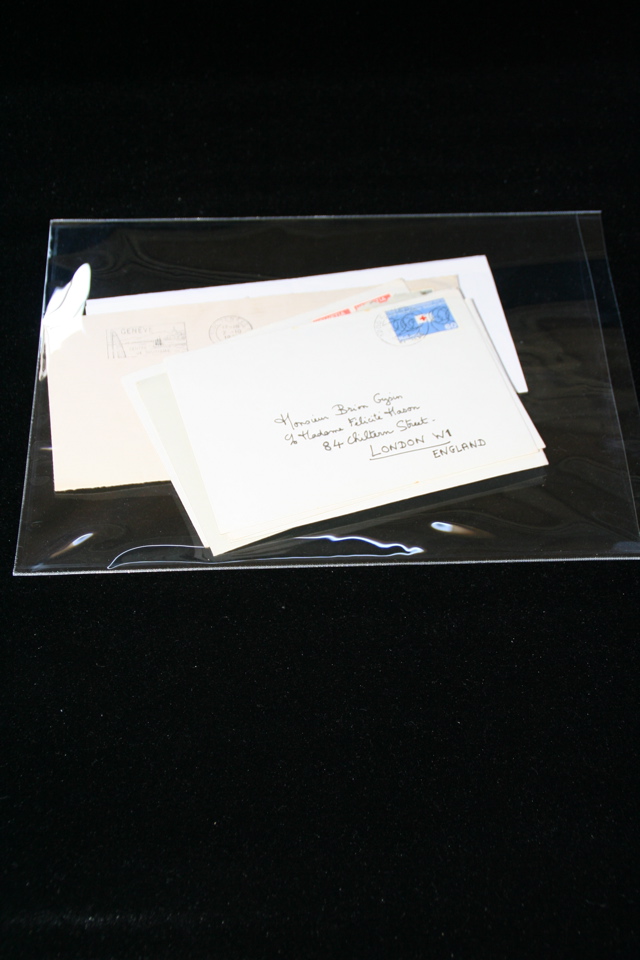 GENEVE
Monsieur Brion Gysin
c/o Madame Félicité Mason
84 Chiltern Street.
LONDON W1
ENGLAND